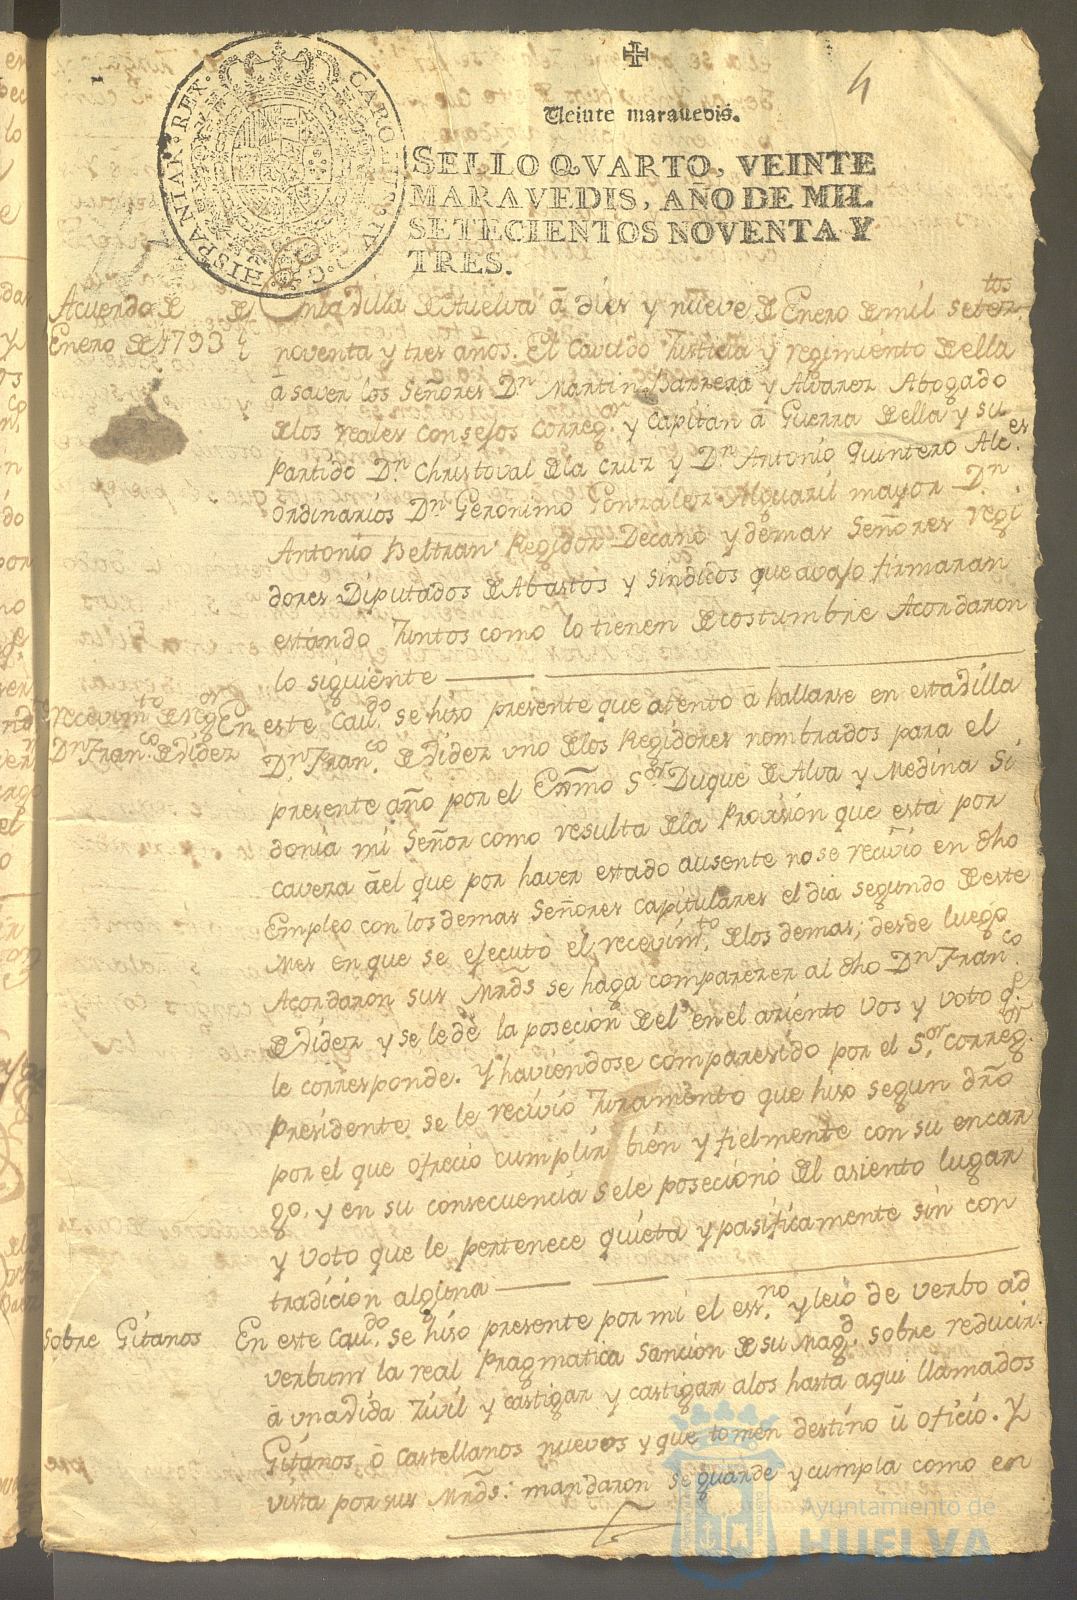 4
Veinte maravedis.
SELLO QVARTO, VEINTE
MARAVEDIS, AÑO DE MIL
SETECIENTOS NOVENTA Y
TRES.
CAROLUS IV D. G. HISPANIAR. REX.
Acuerdo de
Enero de 1793
En la Villa de Huelva á dies y nueve de Enero de mil setez.tos
noventa y tres años. El Cavildo Justicia y regimiento de ella
á saver los Señores Dn Martin Barrera y Alvarez Abogado
de los reales consejos correg.or y capitan á Guerra de ella y su
Partido Dn Christoval de la Cruz y Dn Antonio Quintero Alc.es
ordinarios Dn Geronimo Gonzalez Alguazil mayor Dn
Antonio Beltran Regidor Decano y demas Señores regi
dores Diputados de Abastos y Sindicos que avajo firmaran
estando Juntos como lo tienen de costumbre Acordaron
lo siguiente
recevim.to de Reg.or
Dn Fran.co de Videz
En este Cau.do se hiso presente que atento a hallarse en esta Villa
Dn Fran.co de Videz uno de los Regidores nombrados para el
presente año por el Exmo S.or Duque de Alva y Medina Si
donia mi Señor como resulta de la Provision que está por
cavera á el que por haver estado ausente no se recivio en dho
Empleo con los demas Señores capitulares el dia segundo de este
Mes en que se ejecutó el recevim.to de los demas; desde luego
Acordaron sus Mrds se haga comparezer al dho Dn Fran.co
de Videz y se le dé la posecion de el en el asiento vos y voto q.e
le corresponde. Y haviendose comparesido por el S.or Correg.or
Presidente se le recivio Juramento que hiso segun dro
por el que ofrecio cumplir bien y fielmente con su encar
go, y en su consecuencia se le posecionó del asiento lugar
y voto que le pertenece quieta y pasificamente sin con
tradicion alguna
Sobre Gitanos
En este Cau.do se hiso presente por mi el ess.no y leio de verbo ad
verbum la real Pragmatica Sancion de su Mag.d sobre reducir
á una vida Zivil y castigar y castigar a los hasta aqui llamados
Gitanos ó castellanos nuevos y que tomen destino ú oficio. Y
vista por sus Mrds: mandaron se guarde y cumpla como en
Ayuntamiento de
HUELVA